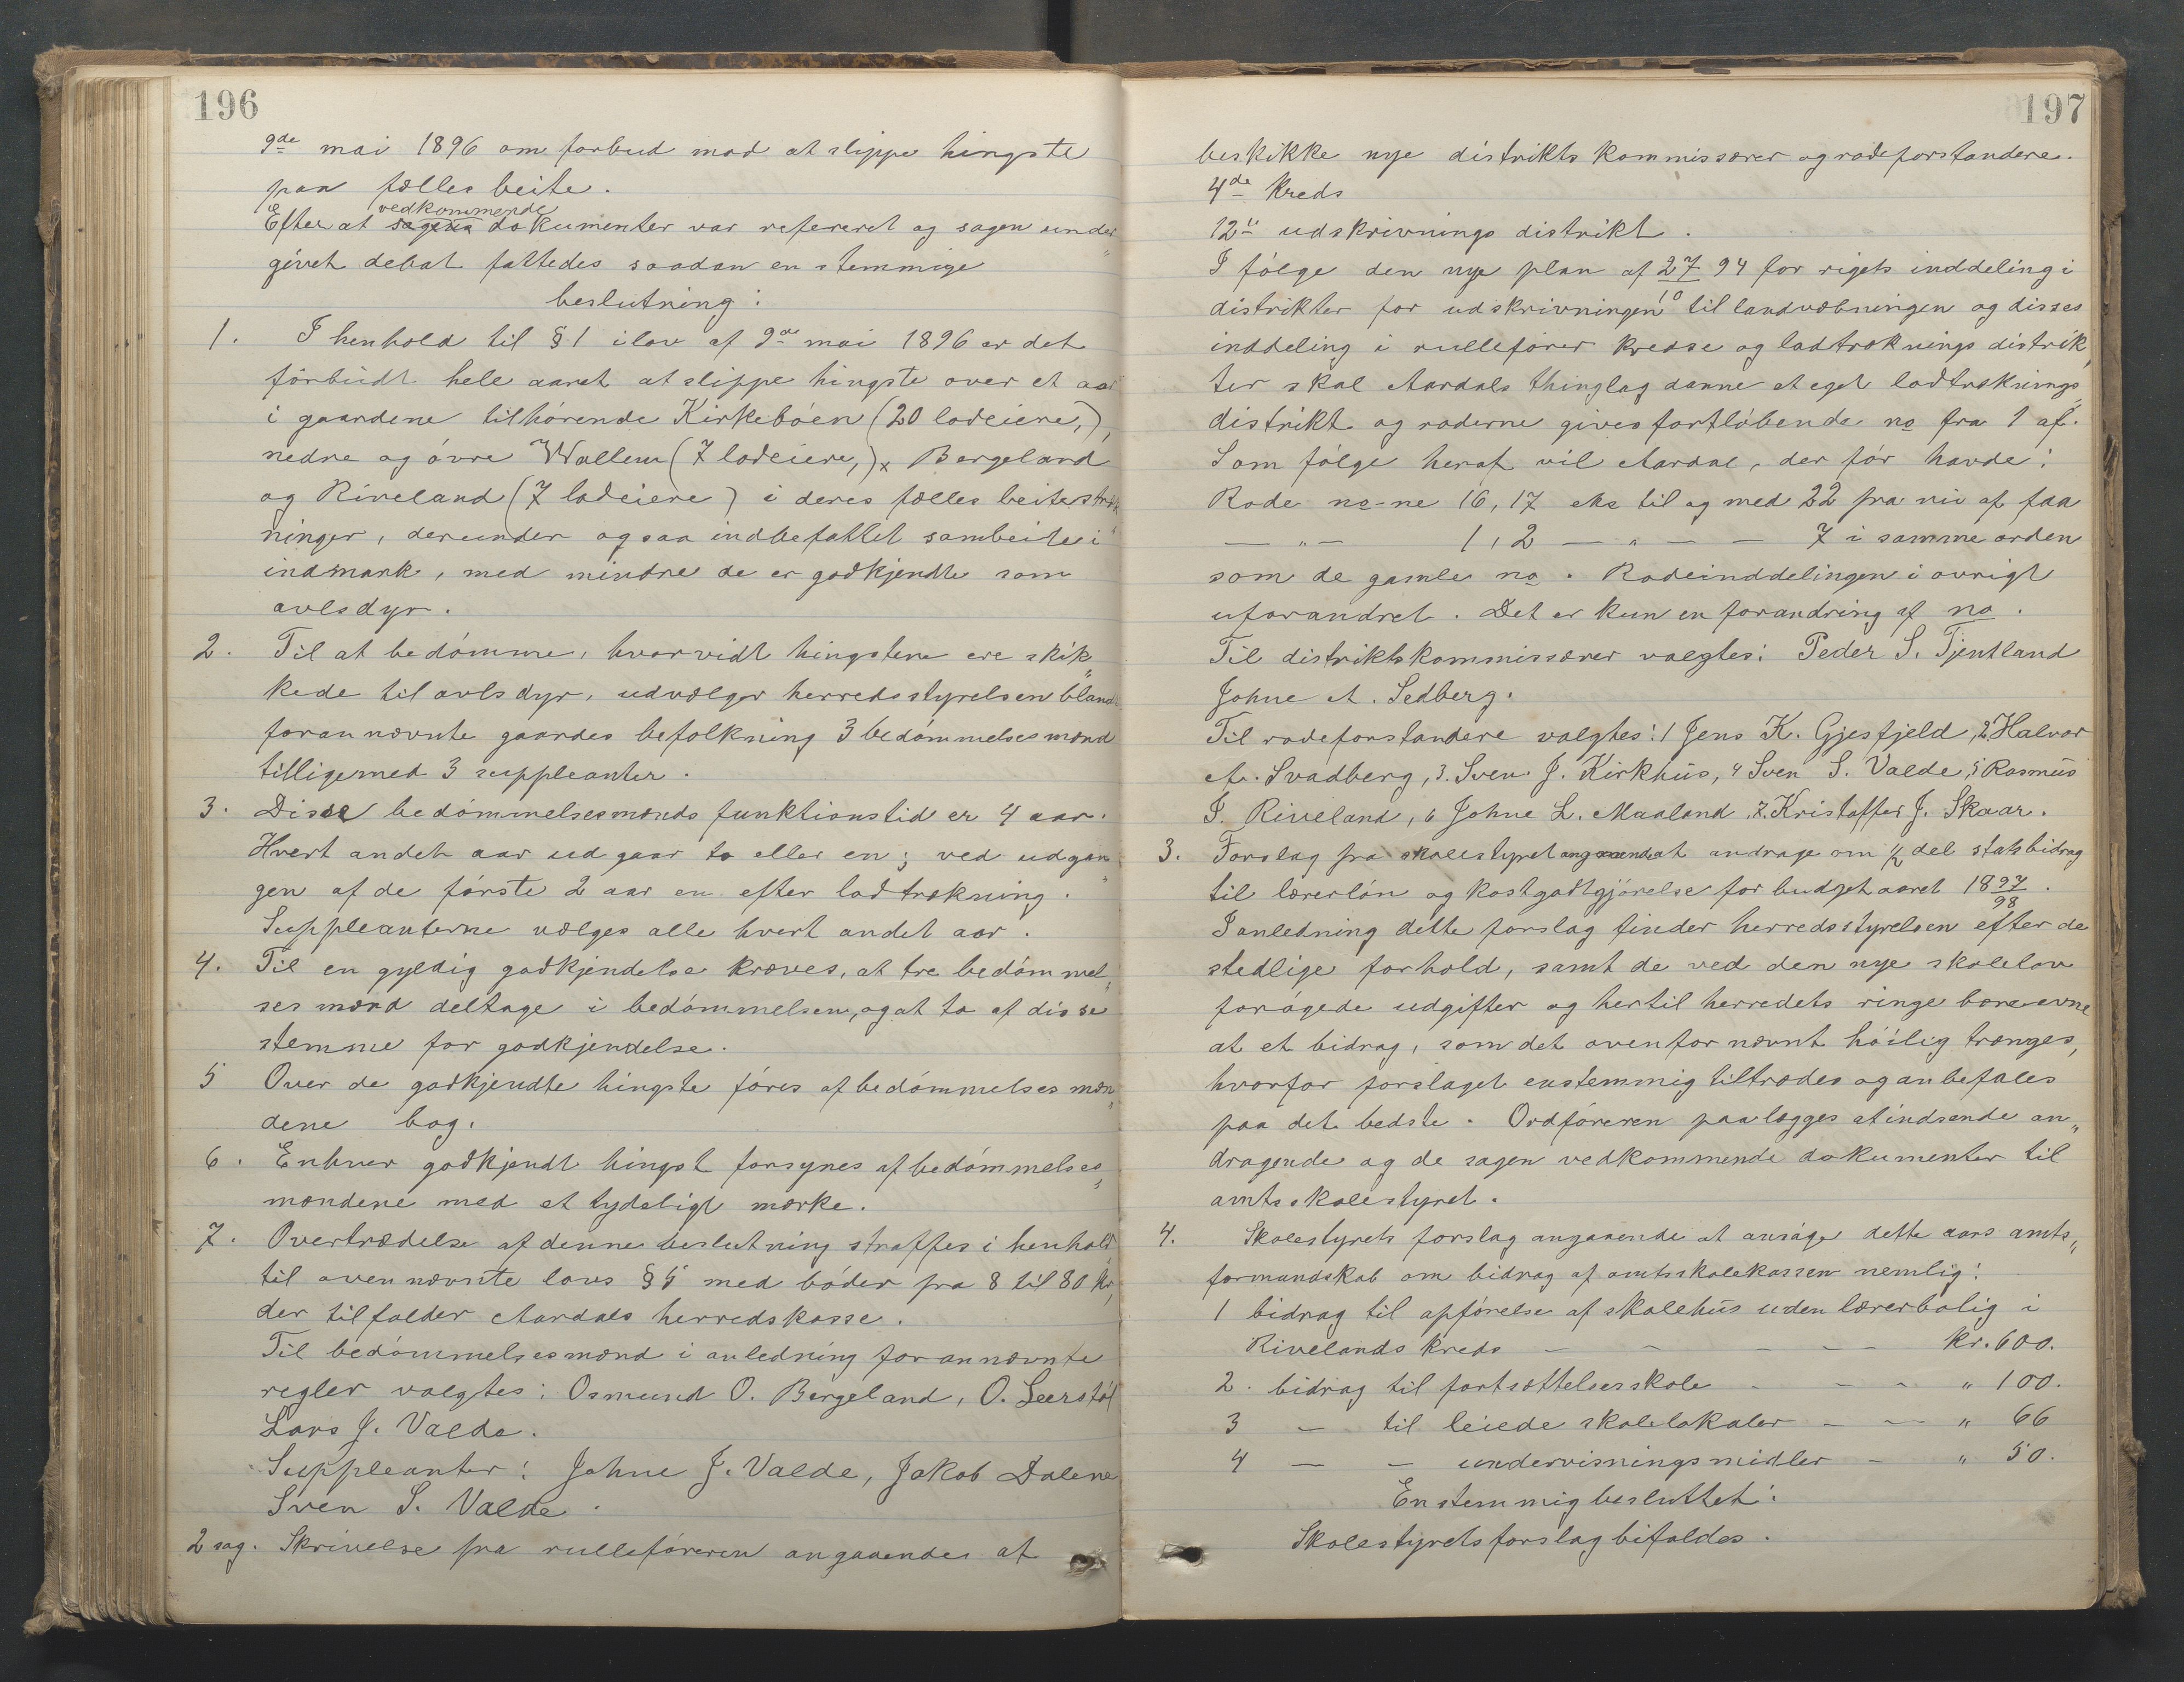 196
9de mai 1896 om forbud mod at slippe hingste
paa fælles beite.
vedkommende
Efter at sagens dokumenter var refereret og sagen under„
givet debat fattedes saadan enstemmige
beslutning:
1. I henhold til § 1 i lov af 9de mai 1896 er det
forbudt hele aaret at slippe hingste over et aar
i gaardene tilhörende Kirkeböen (20 lodeiere,),
nedre og övre Wallem (7 lodeiere,) x Bergeland
og Riveland (7 lodeiere) i deres fælles beitestræk„
ninger, derunder ogsaa indbefattet sambeite i
indmark, med mindre de er godkjendte som
avlsdyr.
2. Til at bedömme, hvorvidt hingstene ere skik„
kede til avlsdyr, udvælger herredsstyrelsen blandt
forannævnte gaardes befolkning 3 bedömmelsesmænd
tilligemed 3 suppleanter.
3. Disse bedömmelsesmænds funktionstid er 4 aar.
Hvert andet aar udgaar to eller en; ved udgan„
gen af de förste 2 aar en efter lodtrækning.
Suppleanterne vælges alle hvert andet aar.
4. Til en gyldig godkjendelse kræves, at tre bedömmel„
sesmænd deltage i bedömmelsen, og at to af disse
stemme for godkjendelse.
5 Over de godkjendte hingste föres af bedömmelsesmæn„
dene bog.
6. Enhver godkjendt hingst forsynes af bedömmelses„
mændene med et tydeligt mærke.
7. Overtrædelse af denne beslutning straffes i henhold
til ovennævnte lovs § 5 med böder fra 8 til 80 kr,
der tilfalder Aardals herredskasse.
Til bedömmelsesmænd i anledning forannævnte
regler valgtes: Osmund O. Bergeland, O. Leerstöl
Lars J. Valde.
Suppleanter: Johne J. Valde, Jakob Dalene
Sven S. Valde.
2 sag. Skrivelse fra rulleföreren angaaendes at
197
beskikke nye distriktskommissærer og rodeforstandere.
4de Kreds
12te udskrivnings distrikt.
I fölge den nye plan af 27/10 94 for rigets inddeling i
distrikter for udskrivningen til landvæbningen og disses
inddeling i rulleförer kredse og lodtræknings distrik„
ter skal Aardals thinglag danne et eget lodtræknings„
distrikt og roderne gives fortlöbende no fra 1 af.
Som fölge heraf vil Aardal, der för havde:
Rode no-ne 16, 17 eks til og med 22 fra nu af faa
— „ — 1, 2 — „ — — 7 i samme orden
som de gamle no. Rodeinddelingen i övrigt
uforandret. Det er kun en forandring af no.
Til distriktskommissærer valgtes: Peder S. Tjentland
Johne A. Sedberg.
Til rodeforstandere valgtes: 1 Jens K. Gjesfjeld, 2 Halvor
A. Svadberg, 3. Sven J. Kirkhus, 4 Sven S. Valde, 5 Rasmus
I. Riveland, 6 Johne L. Maaland, 7. Kristoffer J. Skaar.
3. Forslag fra skolestyret angaaende at andrage om ½ del statsbidrag
til lærerlön og kostgodtgjörelse for budgetaaret 1897/98.
I anledning dette forslag finder herredsstyrelsen efter de
stedlige forhold, samt de ved den nye skolelov
forögede udgifter og hertil herredets ringe bæreevne
at et bidrag, som det ovenfor nævnt höilig trænges,
hvorfor forslaget enstemmig tiltrædes og anbefales
paa det bedste. Ordföreren paalægges at indsende an„
dragende og de sagen vedkommende dokumenter til
amtsskolestyret.
4. Skolestyrets forslag angaaende at ansöge dette aars amts„
formandskab om bidrag af amtsskolekassen nemlig:
1 bidrag til opförelse af skolehus uden lærerbolig i
Rivelands kreds — — — — kr. 600.
2. bidrag til fortsættelsesskole - - - „ 100.
3 — til leiede skolelokaler - - - „ 66
4 — — undervisningsmidler - „ 50.
Enstemmig besluttet:
Skolestyrets forslag bifaldes.